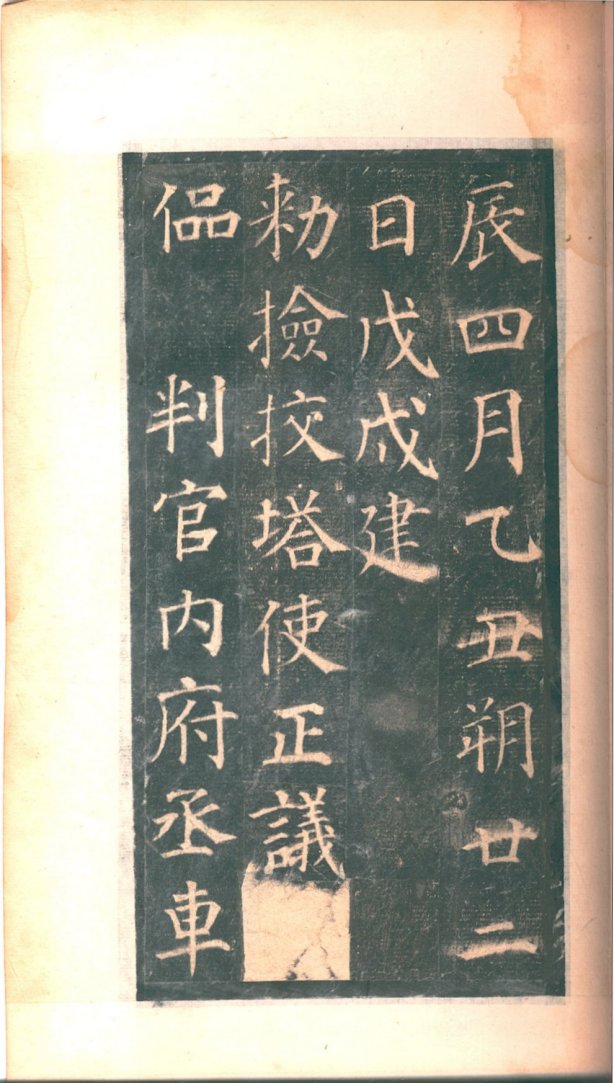 辰四月乙丑朔廿二
日戊戌建
勑撿挍塔使正議
偘　判官内府丞車